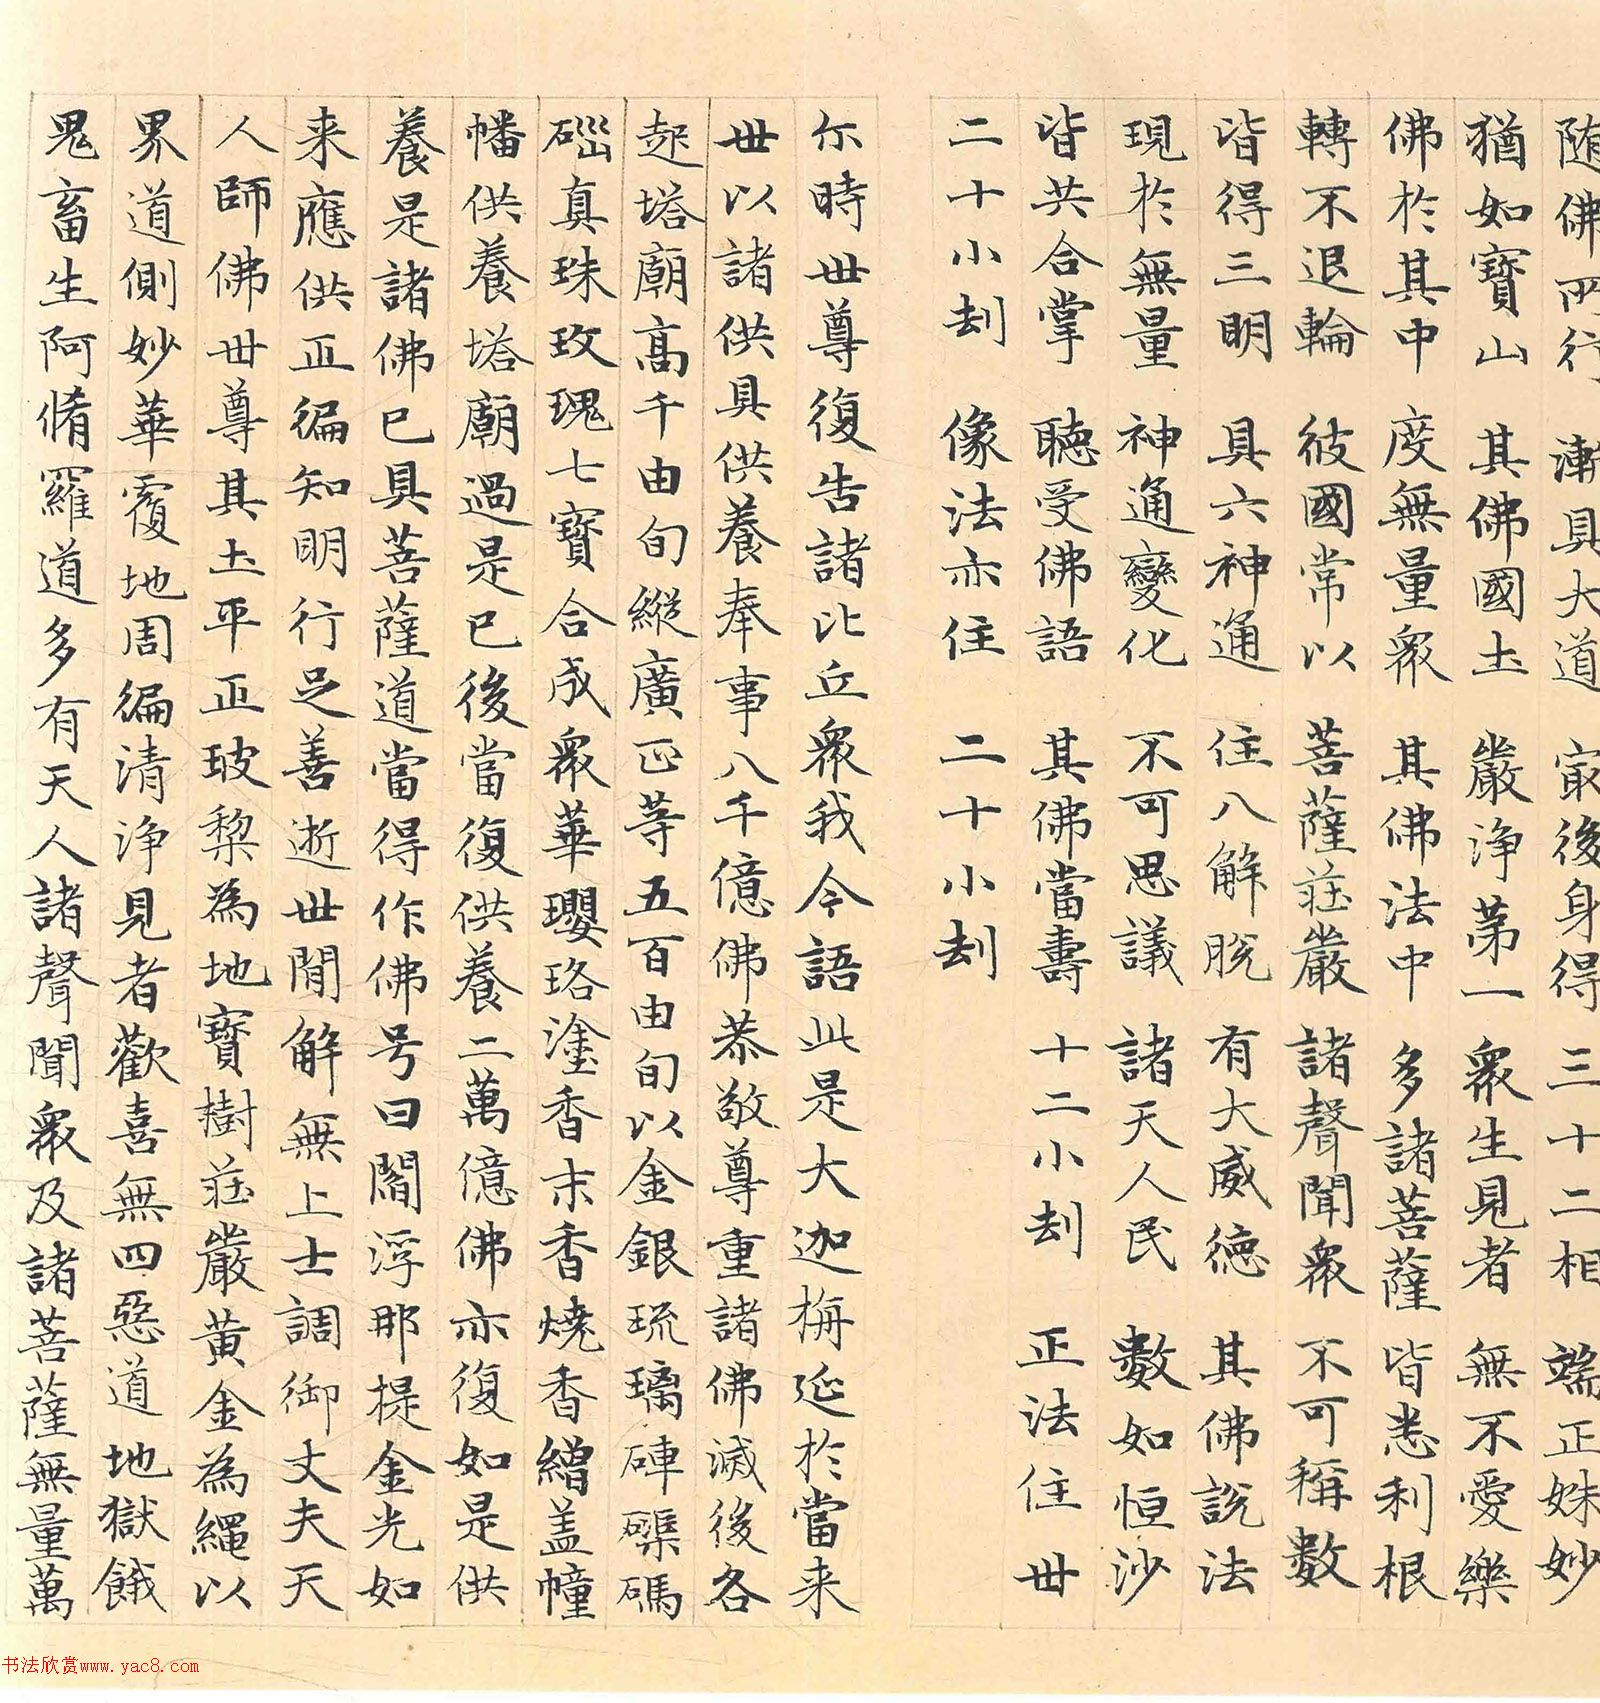 随佛所行 漸具大道 㝡後身得 三十二相 端正姝妙
猶如寶山 其佛國土 嚴淨第一 衆生見者 無不愛樂
佛於其中 度無量衆 其佛法中 多諸菩薩 皆悉利根
轉不退輪 彼國常以 菩薩莊嚴 諸聲聞衆 不可稱數
皆得三明 具六神通 住八解脫 有大威德 其佛說法
現於無量 神通變化 不可思議 諸天人民 數如恒沙
皆共合掌 聽受佛語 其佛當壽 十二小刼 正法住世
二十小刼 像法亦住 二十小刼
尒時世尊復告諸比丘衆我今語此是大迦栴延於當来
世以諸供具供養奉事八千億佛恭敬尊重諸佛滅後各
起塔廟高千由旬縱廣正等五百由旬以金銀琉璃硨磲碼
碯真珠玫瑰七寶合成衆華瓔珞塗香末香燒香繒盖幢
幡供養塔廟過是已後當復供養二萬億佛亦復如是供
養是諸佛已具菩薩道當得作佛号曰閻浮那提金光如
来應供正徧知明行足善逝世閒解無上士調御丈夫天
人師佛世尊其土平正玻瓈為地寶樹莊嚴黄金為繩以
界道側妙華覆地周徧清淨見者歡喜無四惡道地獄餓
鬼畜生阿脩羅道多有天人諸聲聞衆及諸菩薩無量萬
书法欣赏www.yac8.com